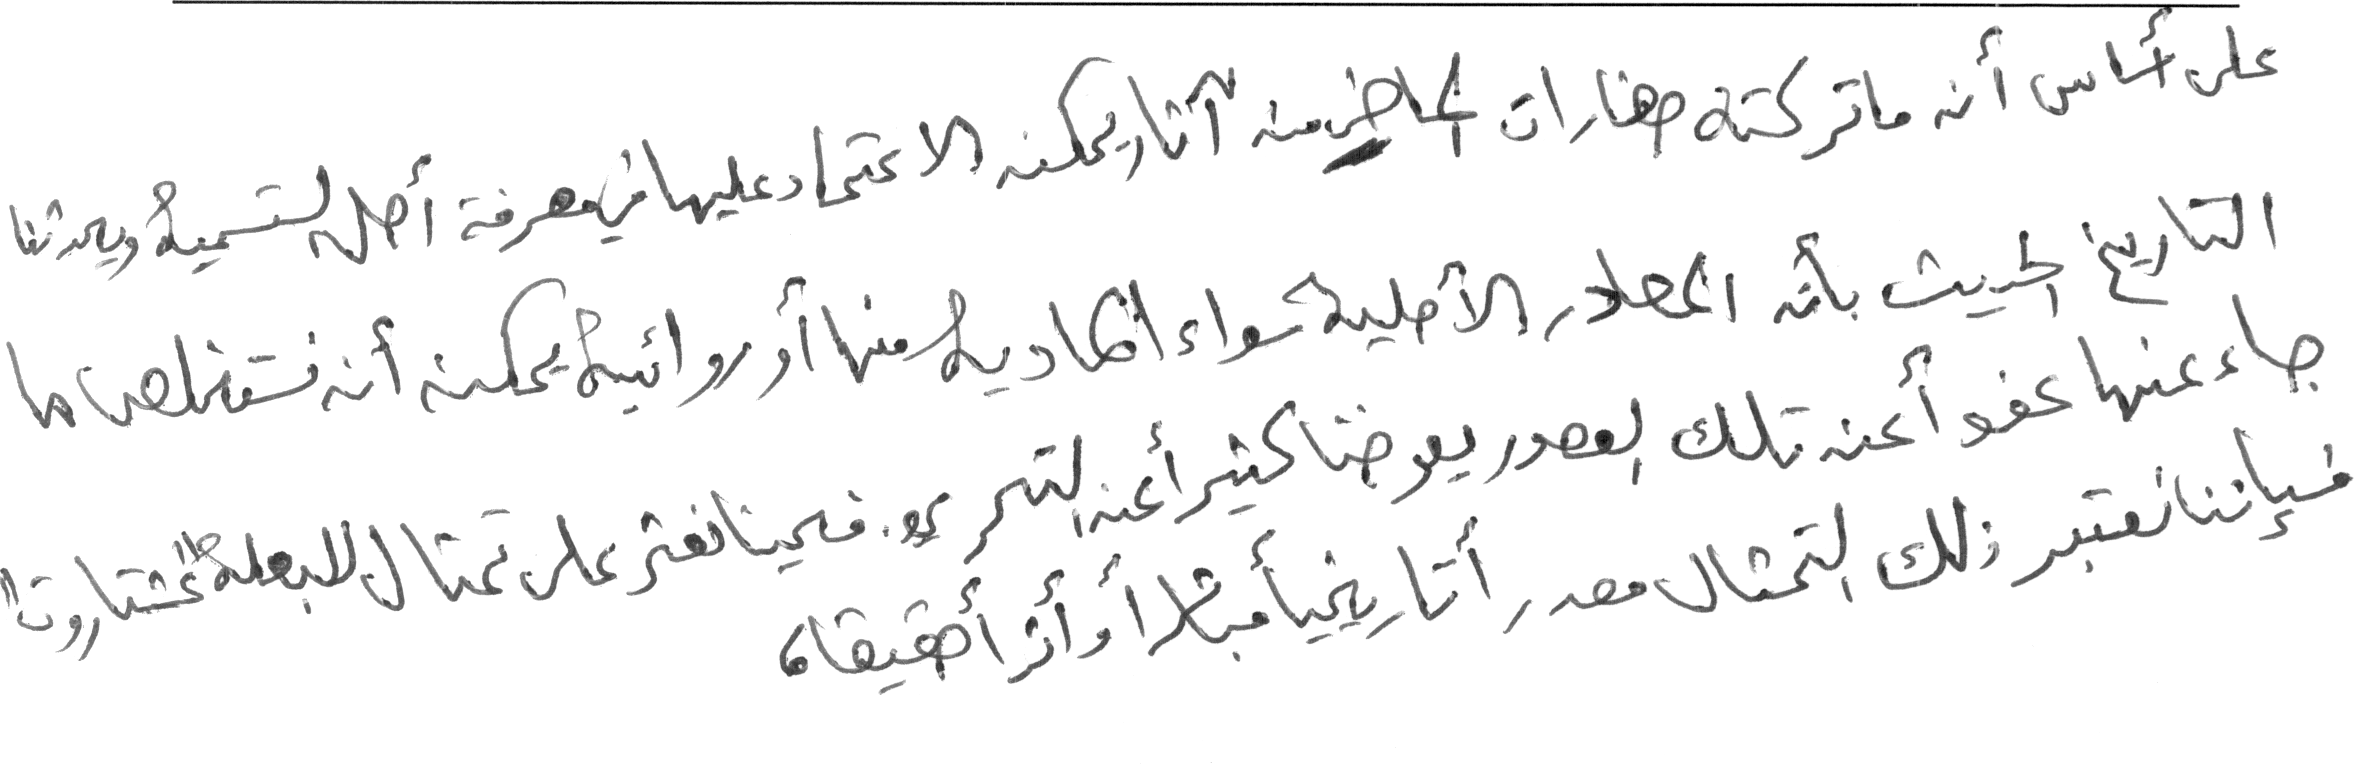 على أساس أن ما تركته حضارات الماضي من آثار يمكن الاعتماد عليها في معرفة أصل التسمية ويحدثنا
التاريخ الحديث بأن المصادر الأصلية سواء المادية منها أو روائية يمكن أن نستخلص ما
جاء عنها عفوأ عن تلك العصور يعوضنا كثيرأ عن التحري. فحينما نعثر على تمثال للبعلة "عشتاروت"
فإننا نعتبر ذلك التمثال مصدرأ تاريخيأ مباشرأ وأثرأ حقيقا،